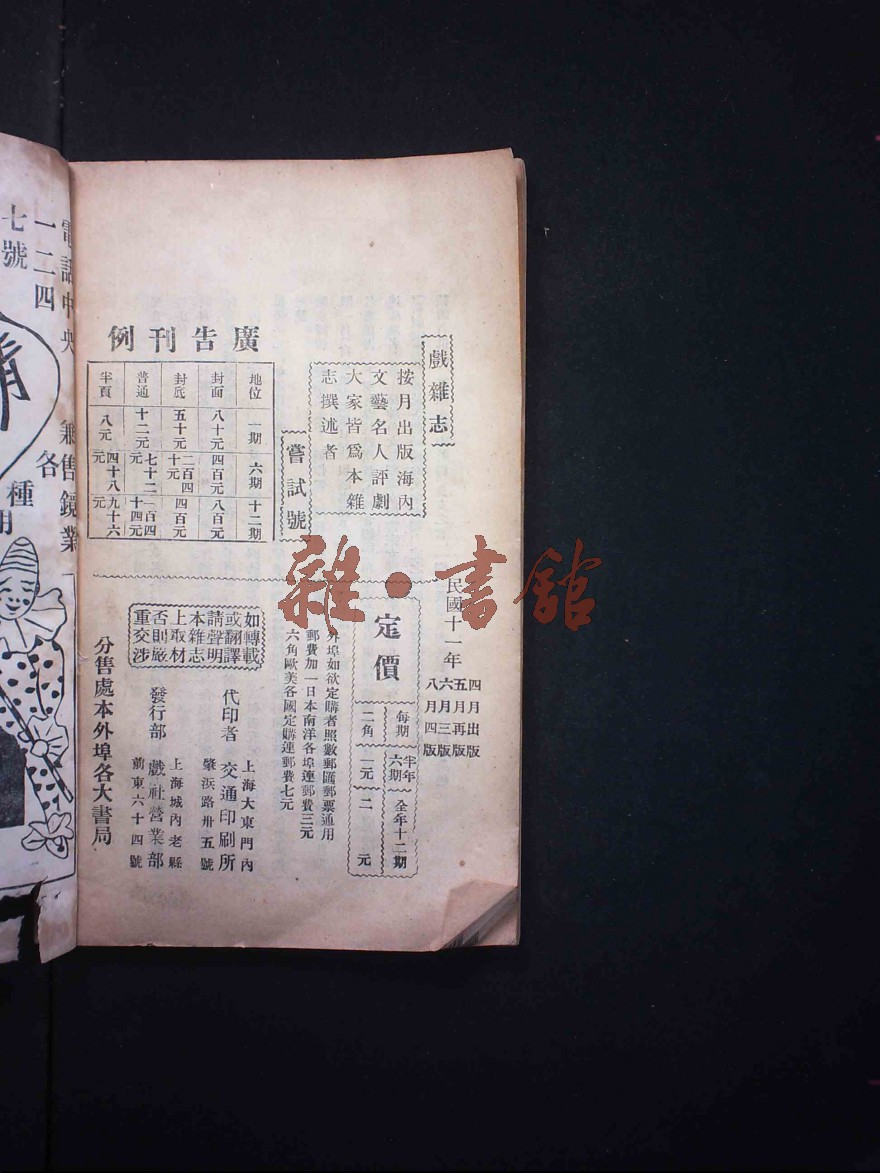 戲雜志
按月出版海內
文藝名人評劇
大家皆爲本雜
志撰述者
嘗試號
廣告刊例
地位 一期 六期 十二期
封面 八十元 四百元 八百元
封底 五十元 二百四十元 四百元
普通 十二元 七十二元 一百四十四元
半頁 八元 四十八元 九十六元
民國十一年
四月出版
五月再版
六月三版
八月四版
定價
每期 半年六期 全年十二期
二角 一元 二元
外埠如欲定購者照數郵匯郵票通用
郵費加一日本南洋各埠連郵費三元
六角歐美各國定購連郵費七元
如轉載
或翻譯
請聲明
本雜志
上取材
否則嚴
重交涉
上海大東門內
代印者 交通印刷所
肇浜路卅五號
上海城內老縣
發行部 戲社營業部
前東六十四號
分售處本外埠各大書局
雜·書館
電話中央
一二四
七號
兼售鏡業
各
種